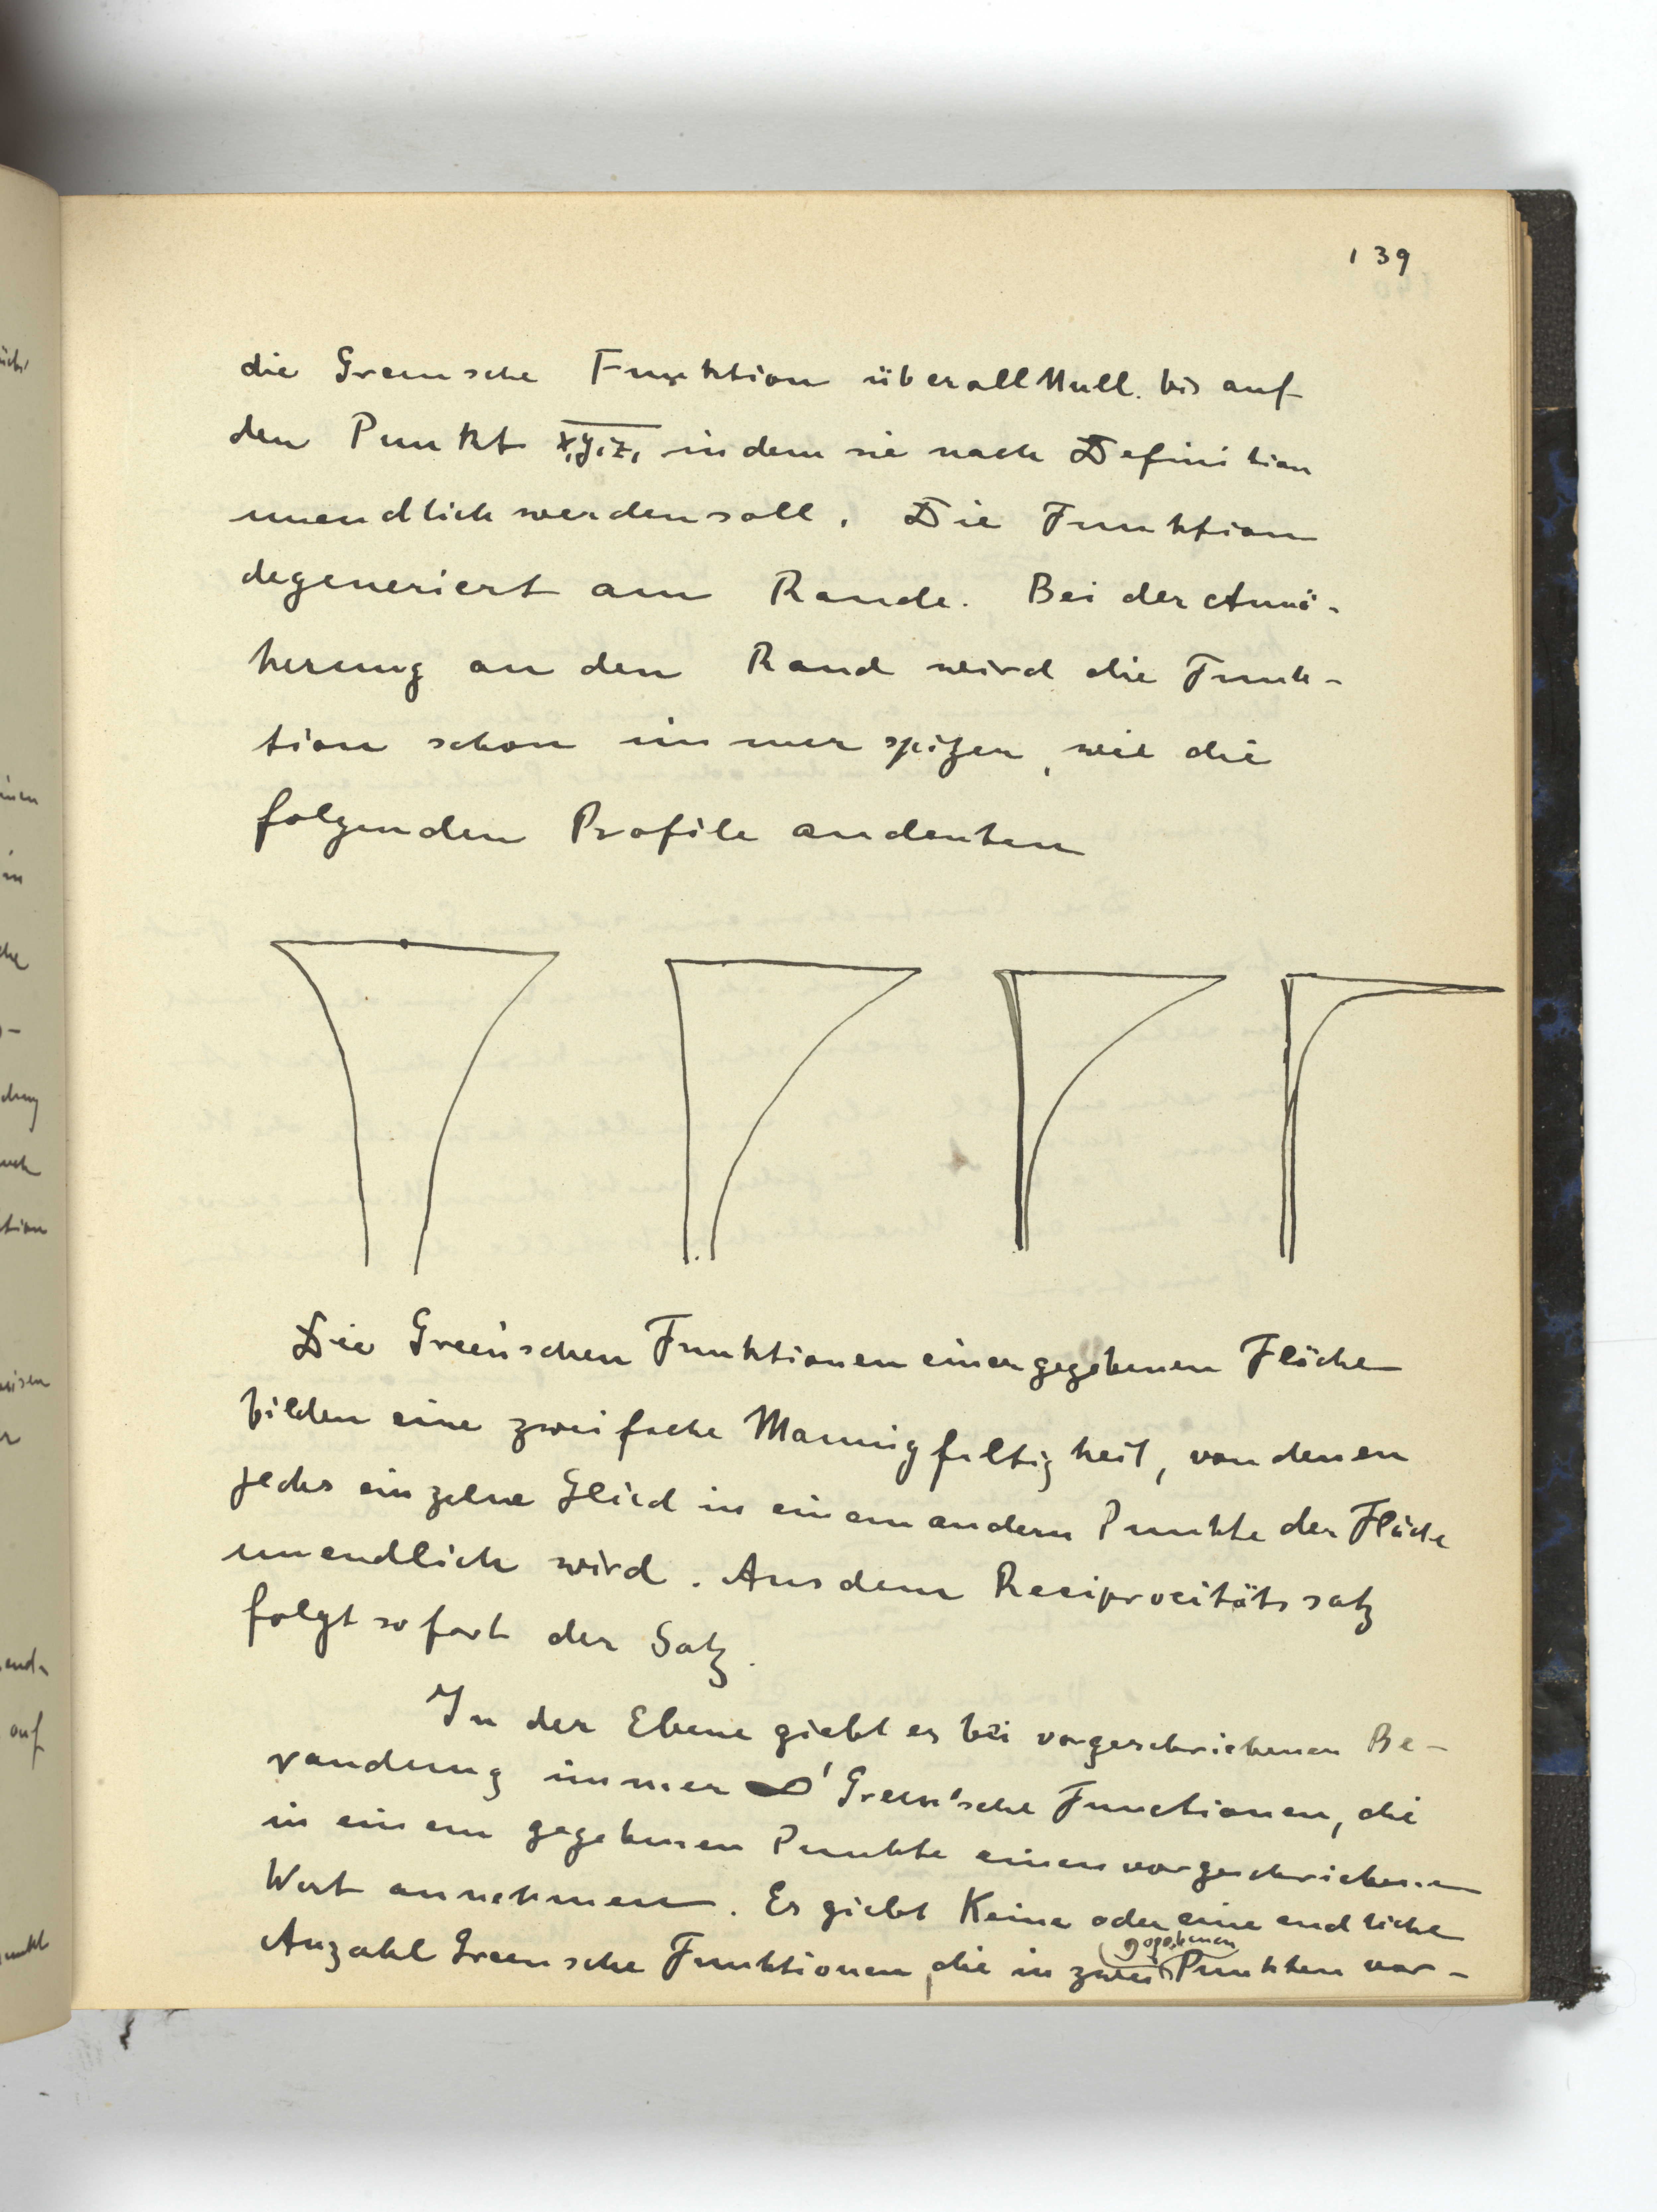 139
die Greensche Funktion überall Null bis auf
den Punkt x,y,z, in dem sie nach Definition
unendlich werden soll. Die Funktion
degeneriert am Rande. Bei der Annä-
herung an den Rand wird die Funk-
tion schon immer spitzer, wie die
folgenden Profile andeuten
Die Green'schen Funktionen einer gegebenen Fläche
bilden eine zweifache Mannigfaltigkeit, von denen
jedes einzelne Glied in einem andern Punkte der Fläche
unendlich wird. Aus dem Reciprocitätssatz
folgt sofort der Satz.
In der Ebene giebt es bei vorgeschriebenen Be-
randung immer ∞¹ Green'sche Functionen, die
in einem gegebenen Punkte einen vorgeschriebenen
Wert annehmen. Es giebt Keine oder eine endliche
gegebenen
Anzahl Greensche Funktionen, die in zwei Punkten vor-